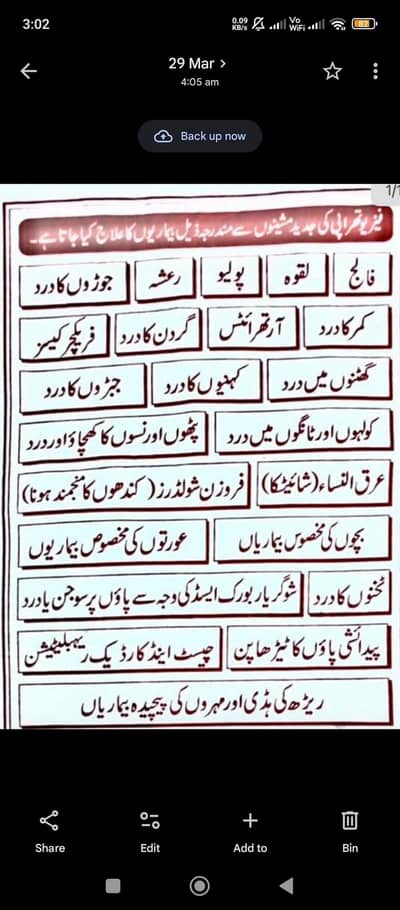 3:02
0.09 KB/s
Vo WiFi
87
29 Mar >
4:05 am
Back up now
1/1
فیزیوتھراپی کی جدید مشینوں سے مندرجہ ذیل بیماریوں کا علاج کیا جاتا ہے۔
فالج لقوہ پولیو رعشہ جوڑوں کا درد
کمر کا درد آرتھرائٹس گردن کا درد فریکچر کیسز
گھٹنوں میں درد کہنیوں کا درد جبڑوں کا درد
کولہوں اور ٹانگوں میں درد پٹھوں اور نسوں کا کھچاؤ اور درد
عرق النساء (شائیٹکا) فروزن شولڈرز (کندھوں کا منجمند ہونا)
بچوں کی مخصوص بیماریاں عورتوں کی مخصوص بیماریوں
ٹخنوں کا درد شوگر یا یورک ایسڈ کی وجہ سے پاؤں پر سوجن یا درد
پیدائشی پاؤں کا ٹیڑھا پن چیسٹ اینڈ کارڈیک ریہبلیٹیشن
ریڑھ کی ہڈی اور مہروں کی پیچیدہ بیماریاں
Share Edit Add to Bin